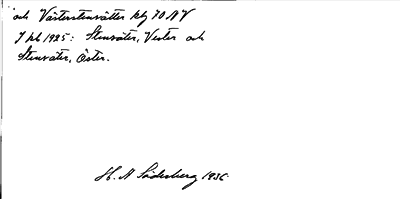 och Västerstensätter kbl 70 NV
I jkb 1925: Stensäter, Vester och
Stensäter, Öster.
H. N Söderberg 1936.